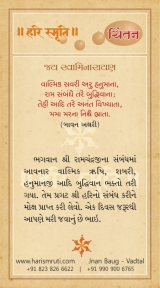 ॥ हरि स्मृति ॥
ચિંતન
જય સ્વામિનારાયણ
વાલ્મિક સવરી અરુ હનુમાના,
રામ સંબંધી તરે બુદ્ધિવાના;
તેહી આદિ તરે અનંત વિખ્યાતા,
મમા મરના નિશ્ચે ભ્રાતા.
(બાવન અક્ષરી)
ભગવાન શ્રી રામચંદ્રજીના સંબંધમાં
આવનાર વાલ્મિક ઋષિ, શબરી,
હનુમાનજી આદિ બુદ્ધિવાન ભક્તો તરી
ગયા. તેમ પ્રગટ શ્રી હરિનો સંબંધ કરીને
મોક્ષ પ્રાપ્ત કરી લેવો. એક દિવસ જરૂરથી
આપણે મરી જવાનું છે ભાઇ.
www.harismruti.com
Jnan Baug - Vadtal
+91 823 826 6622 | +91 990 900 6765